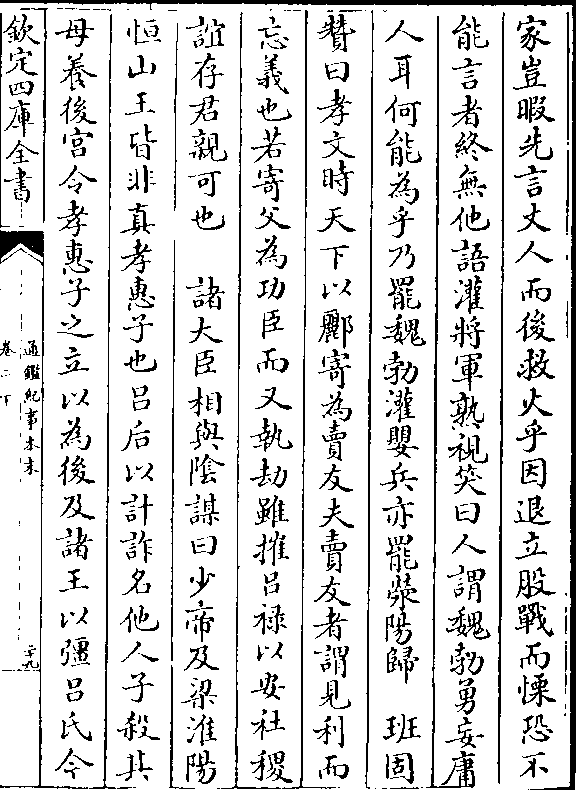 家豈暇先言丈人而後救火乎因退立股戰而慄恐不
能言者終無他語灌將軍熟視笑曰人謂魏勃勇妄庸
人耳何能為乎乃罷魏勃灌嬰兵亦罷滎陽歸　班固
贊曰孝文時天下以酈寄為賣友夫賣友者謂見利而
忘義也若寄父為功臣而又執劫雖摧吕禄以安社稷
誼存君親可也　諸大臣相與陰謀曰少帝及梁淮陽
恒山王皆非真孝惠子也吕后以計詐名他人子殺其
母養後宫令孝惠子之立以為後及諸王以彊吕氏今
欽定四庫全書
通鑑紀事本末
卷二下
二十九